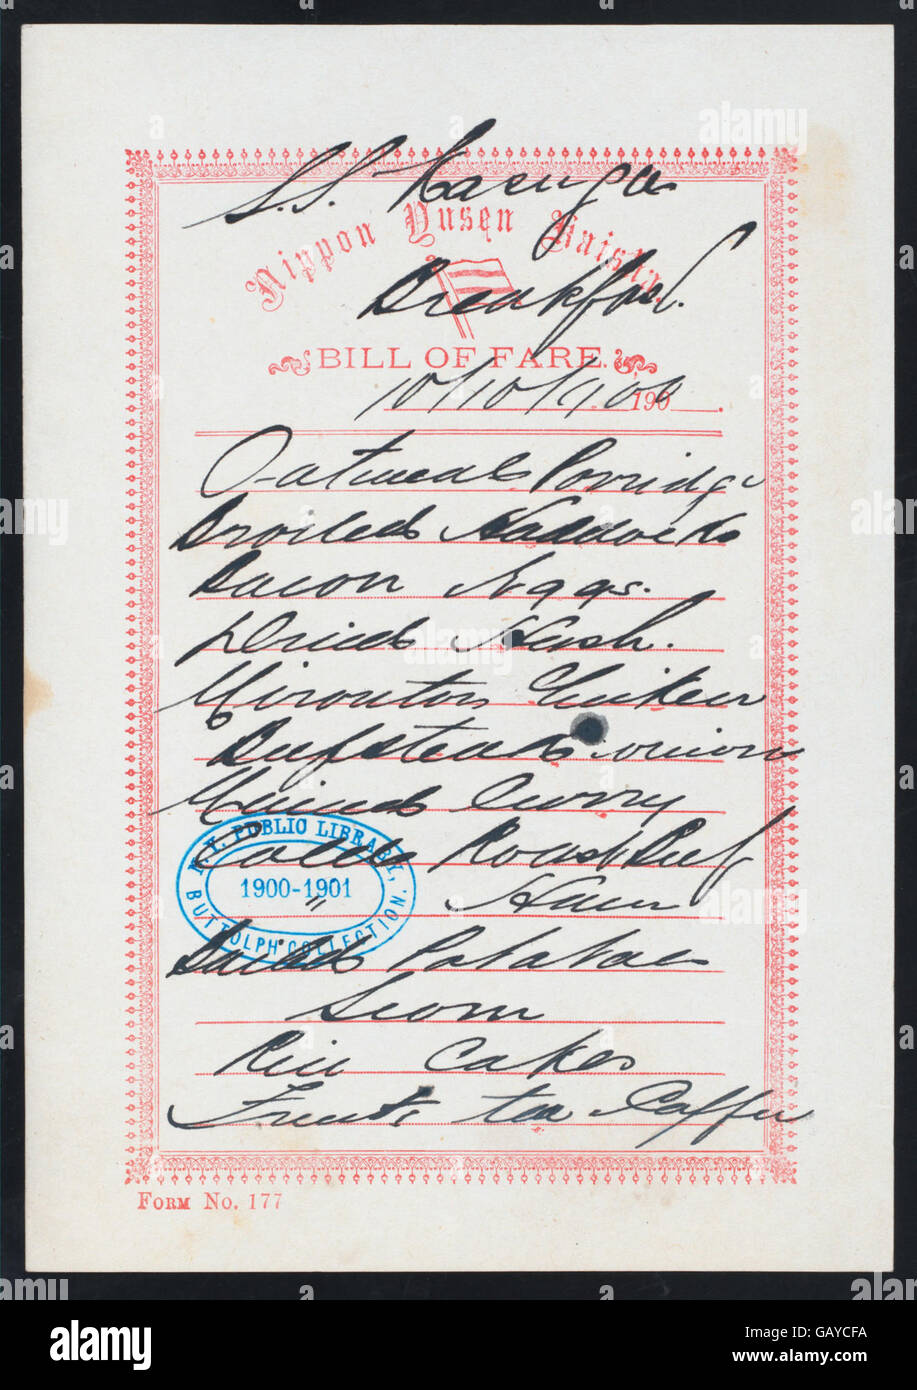 S.S. Kasuga
Nippon Yusen Kaisha.
Breakfast.
BILL OF FARE.
10/10/1900 190
Oatmeal Porridge
Broiled Haddocks
Bacon Eggs.
Dried Hash.
Mironton Chicken
Beefsteak onion
Minced Curry
Cold Roast Beef
" Ham
N.Y. PUBLIC LIBRARY,
1900-1901
BUTTOLPH COLLECTION.
Potatoes
Rice Cakes
Fruits tea Coffee
FORM No. 177
alamy
Image ID: GAYCFA
www.alamy.com